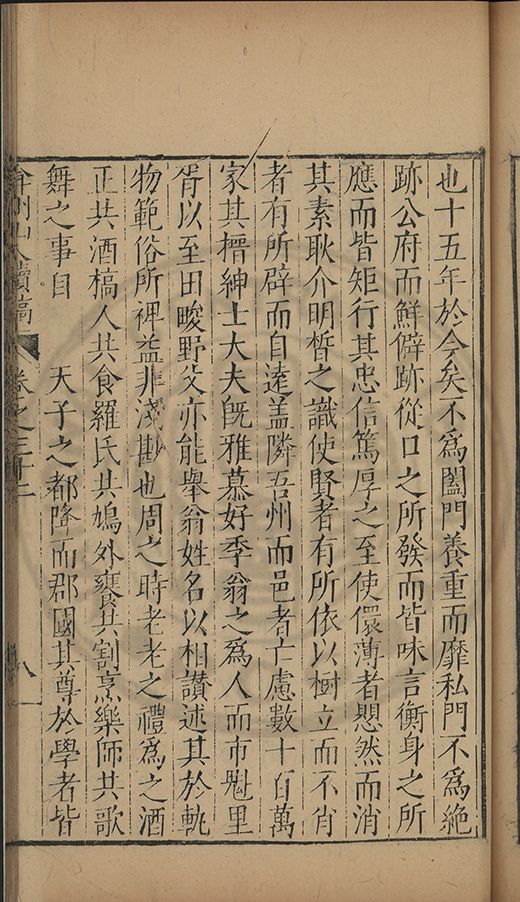 也十五年於今矣不爲闔門養重而靡私門不爲絶
跡公府而鮮僻跡從口之所發而皆味言衡身之所
應而皆矩行其忠信篤厚之至使儇薄者愳然而消
其素耿介明晳之識使賢者有所依以樹立而不肖
者有所辟而自遠盖隣吾州而邑者亡慮數十百萬
家其搢紳士大夫旣雅慕好季翁之爲人而市魁里
胥以至田畯野父亦能舉翁姓名以相讃述其於軌
物範俗所裨益非淺尠也周之時老老之禮爲之酒
正共酒槁人共食羅氏共鳩外饔共割烹樂師共歌
舞之事自 天子之都降而郡國其尊於學者皆
弇州山人續稿 卷之三十二 八